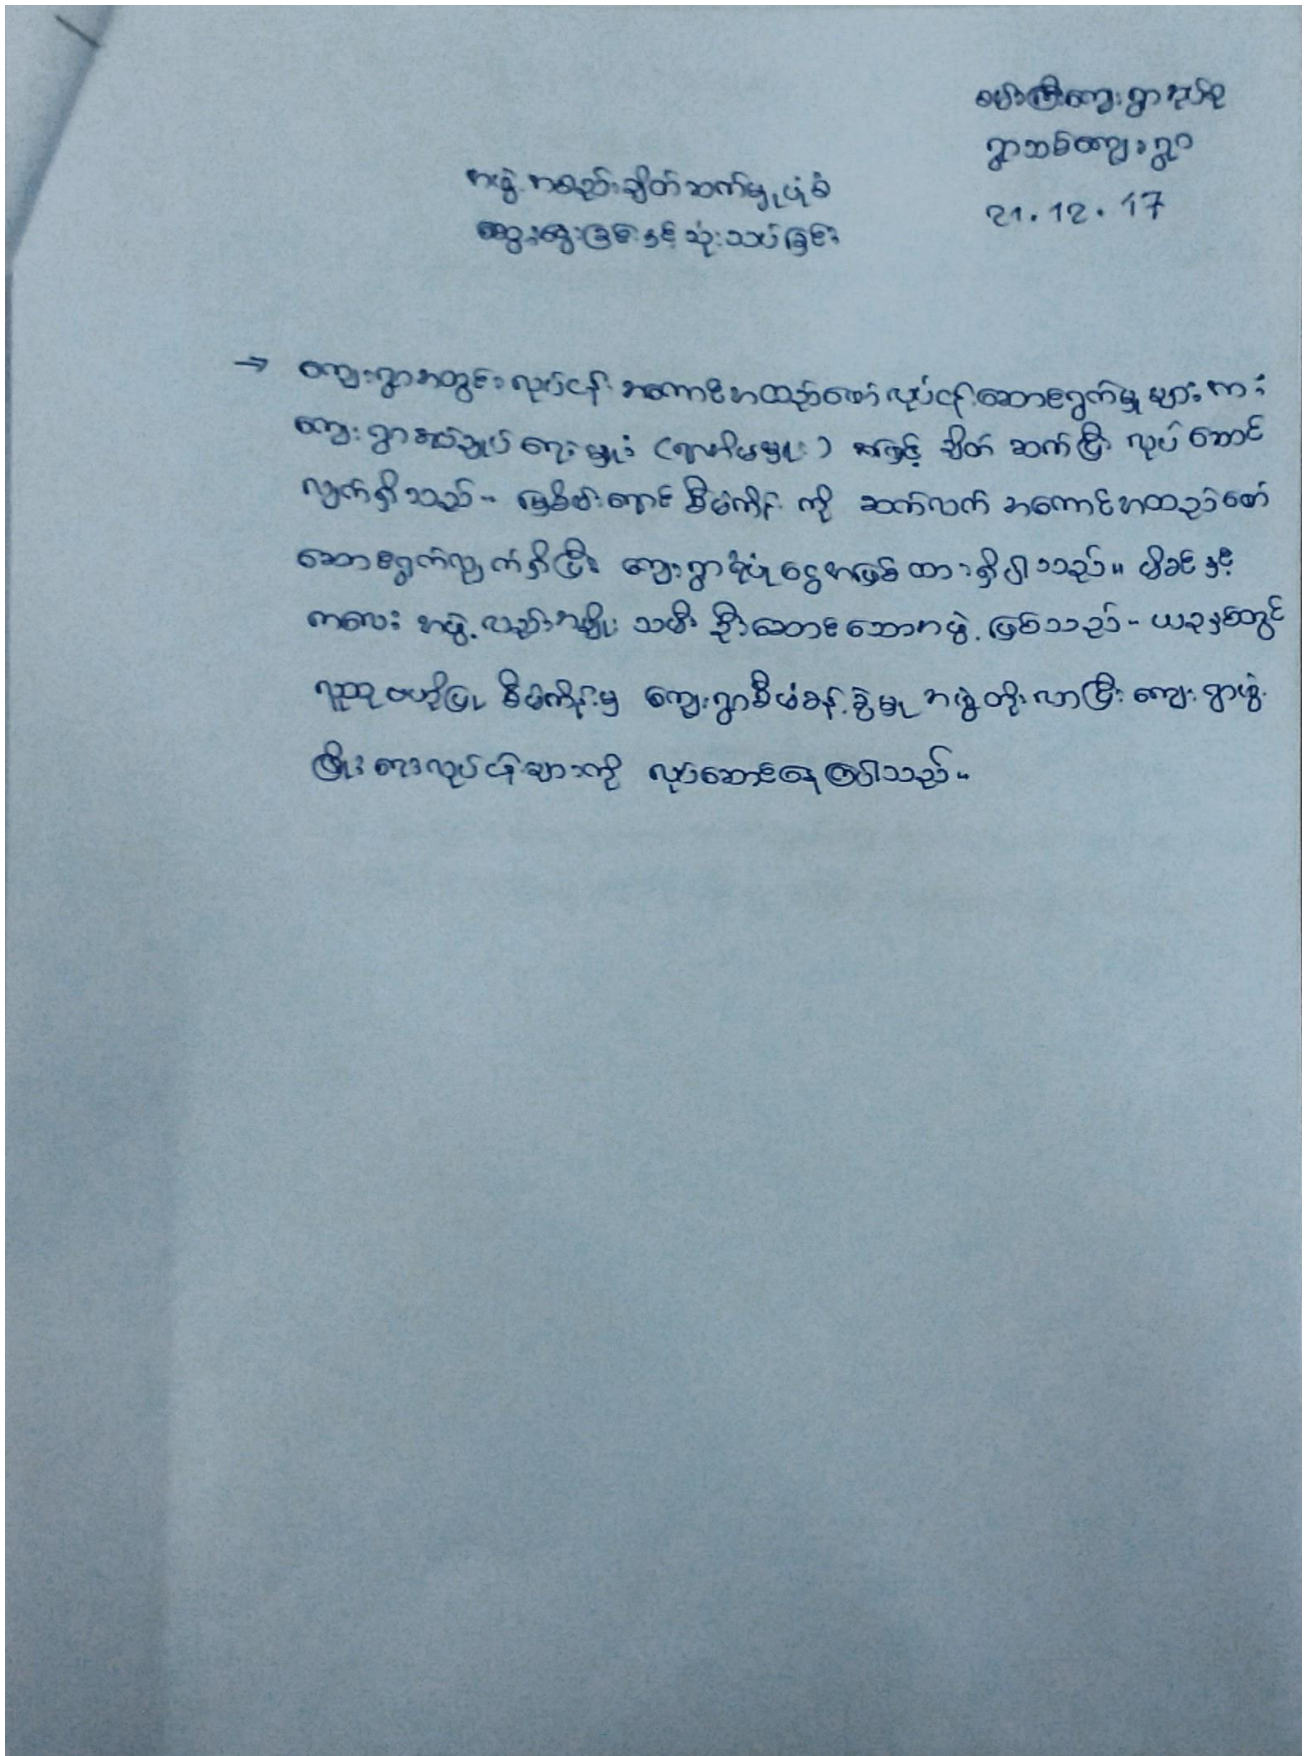 ကျေးရွာအုပ်စု
ရွာသစ်ကျေးရွာ
21.12.17
အဖွဲ့အစည်းချိတ်ဆက်မှုပုံစံ
ဆွေးနွေးခြင်းနှင့် သုံးသပ်ခြင်း
→ ကျေးရွာအတွင်း လုပ်ငန်း အကောင်အထည်ဖော် လုပ်ငန်းဆောင်ရွက်မှု များအား
ကျေးရွာအုပ်ချုပ်ရေးမှူး ( ) အဖြင့် ချိတ်ဆက်ပြီး လုပ်ဆောင်
လျှက်ရှိသည်။ မြစိမ်းရောင် စီမံကိန်း ကို ဆက်လက် အကောင်အထည်ဖော်
ဆောင်ရွက်လျှက်ရှိပြီး ကျေးရွာပိုင်ပုံငွေအဖြစ် ထားရှိပါသည်။ မိခင်နှင့်
ကလေး အဖွဲ့လည်း အမျိုးသမီး ဦးဆောင်သောအဖွဲ့ ဖြစ်သည်။ ယခုနှစ်တွင်
လူထုဗဟိုပြု စီမံကိန်းမှ ကျေးရွာစီမံခန့်ခွဲမှု အဖွဲ့တိုးလာပြီး ကျေးရွာဖွံ့
ဖြိုးရေးလုပ်ငန်းများကို လုပ်ဆောင်နေကြပါသည်။